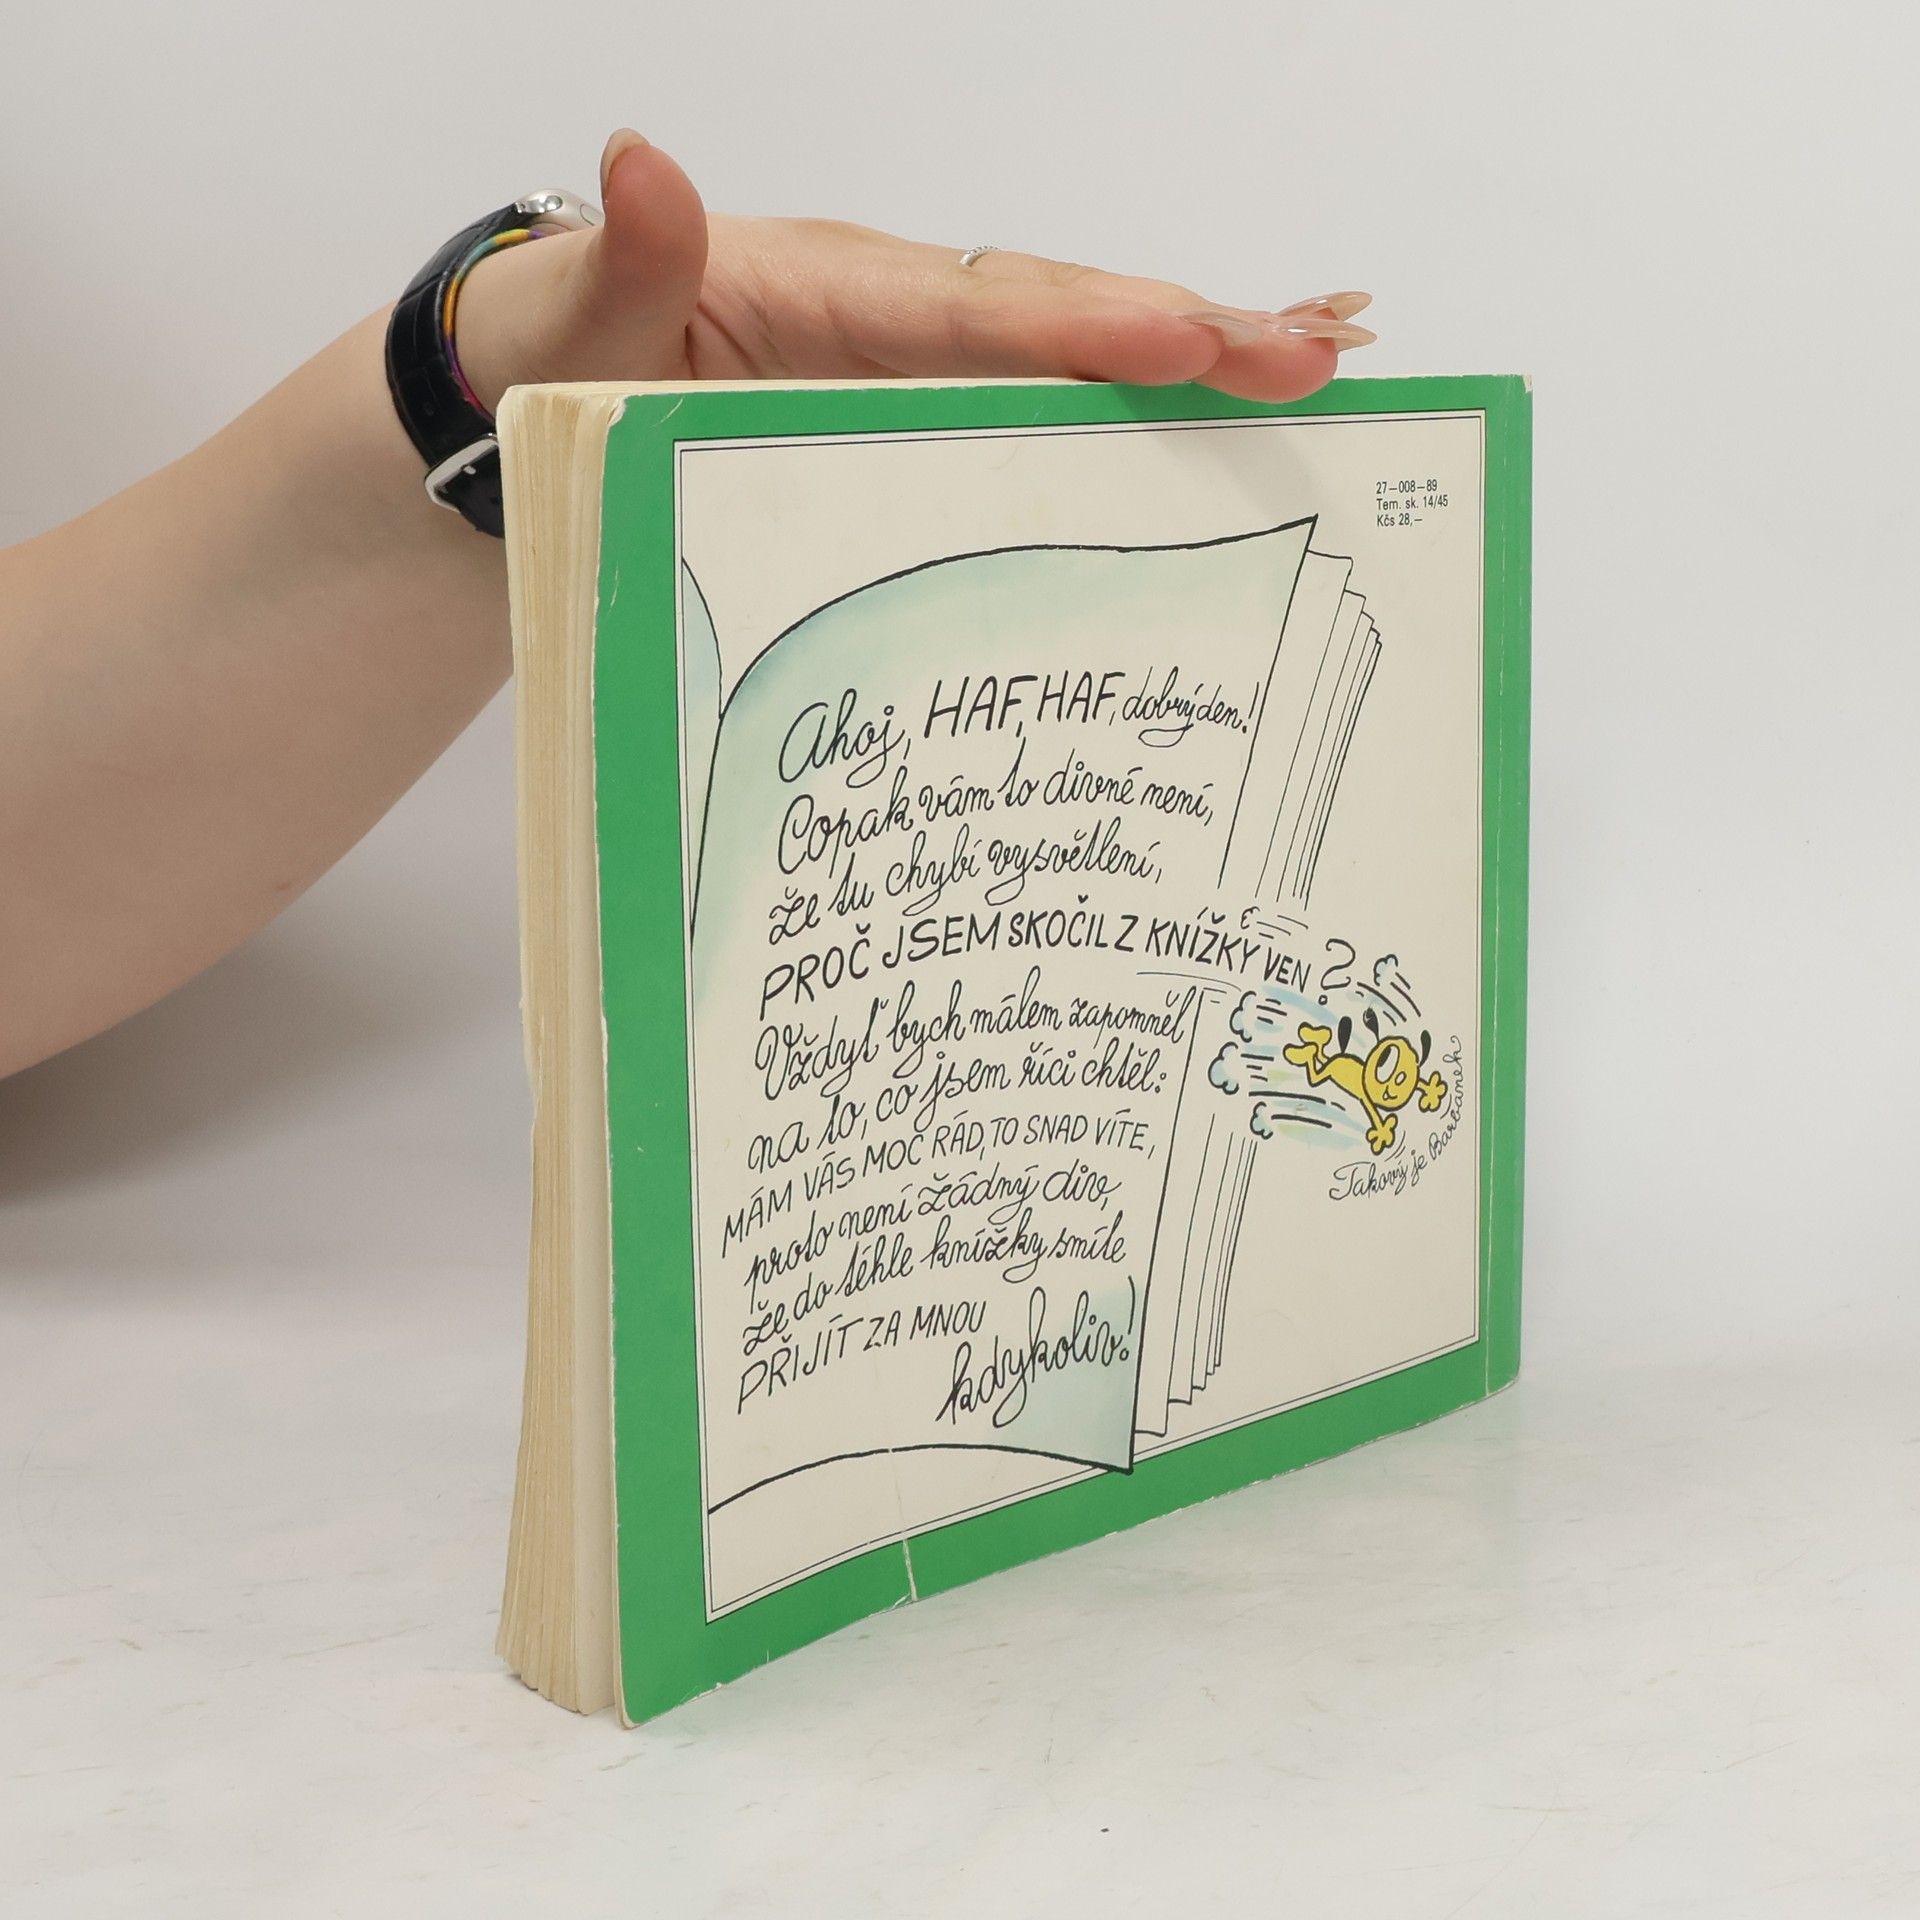 27-008-89
Tem. sk. 14/45
Kčs 28,-
Ahoj, HAF, HAF, dobrý den!
Copak vám to divné není,
že tu chybí vysvětlení,
PROČ JSEM SKOČIL Z KNÍŽKY VEN?
Vždyť bych málem zapomněl
na to, co jsem říci chtěl:
MÁM VÁS MOC RÁD, TO SNAD VÍTE,
proto není žádný div,
že do téhle knížky smíte
PŘIJÍT ZA MNOU
kdykoliv!
Takový je Barbánek